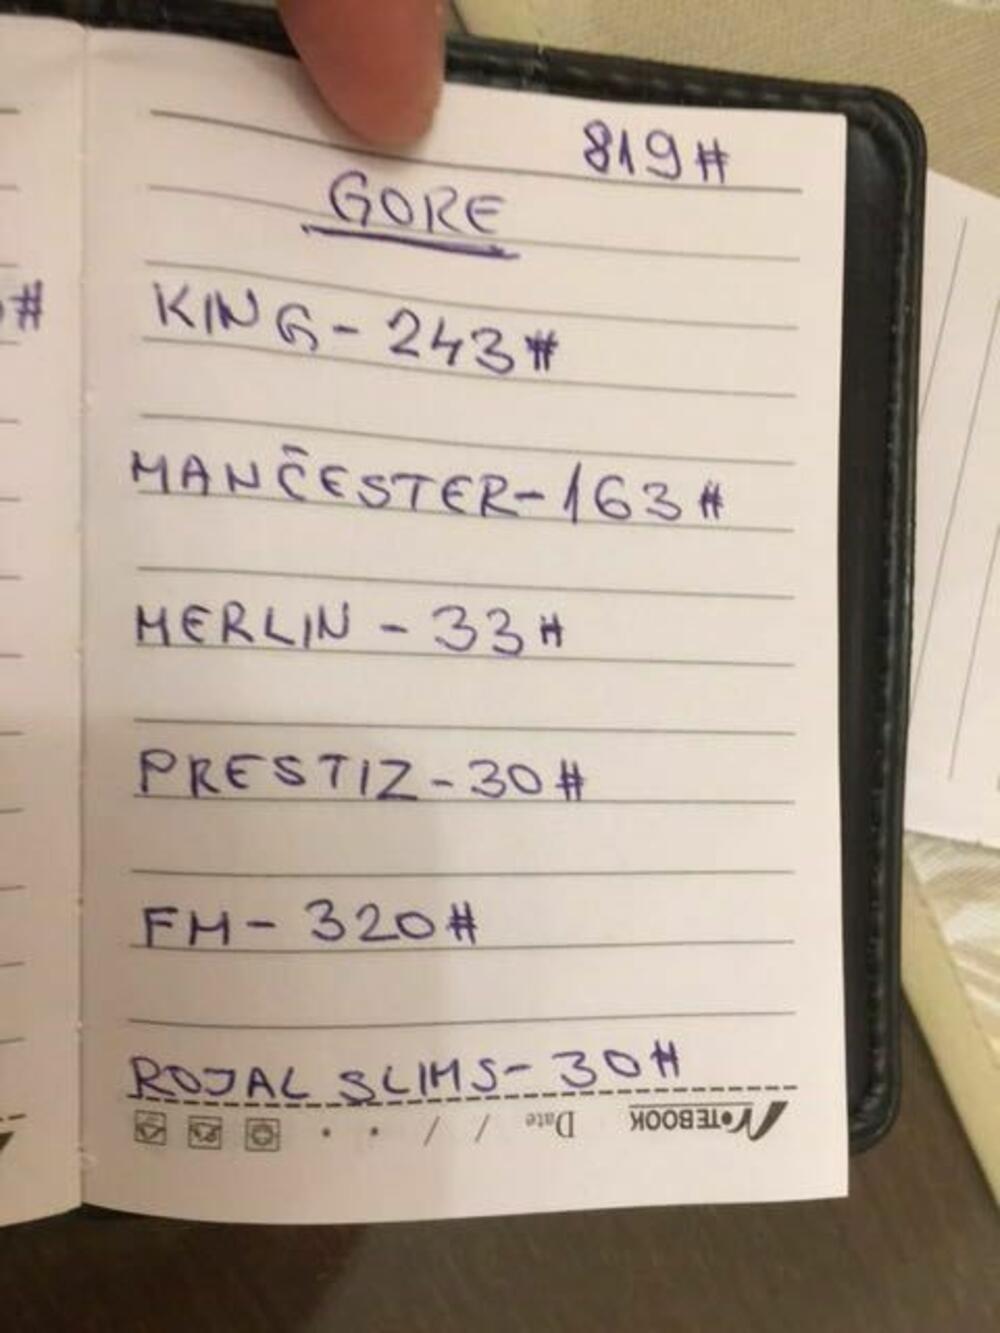 819#
GORE
#
KING - 243#
MANČESTER - 163#
MERLIN - 33#
PRESTIZ - 30#
FM - 320#
ROJAL SLIMS - 30#
NOTEBOOK Date / /